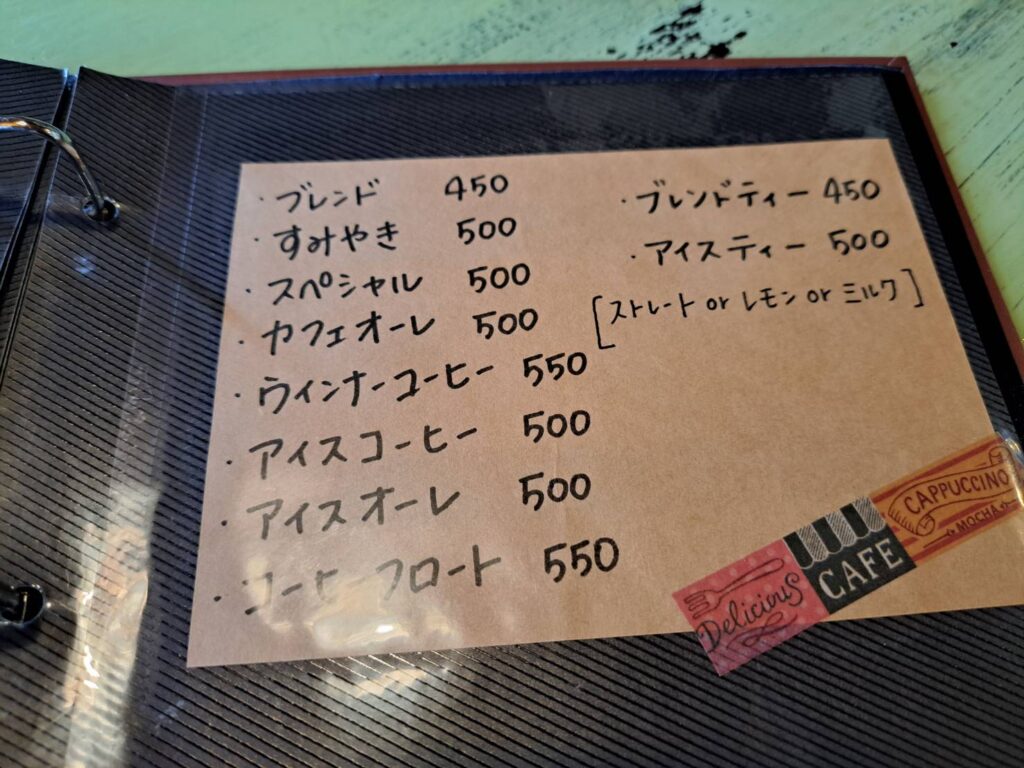 ・ブレンド 450
・すみやき 500
・スペシャル 500
・カフェオーレ 500
・ウインナーコーヒー 550
・アイスコーヒー 500
・アイスオーレ 500
・コーヒーフロート 550
・ブレンドティー 450
・アイスティー 500
[ストレート or レモン or ミルク]
Delicious
CAFE
CAPPUCCINO
MOCHA